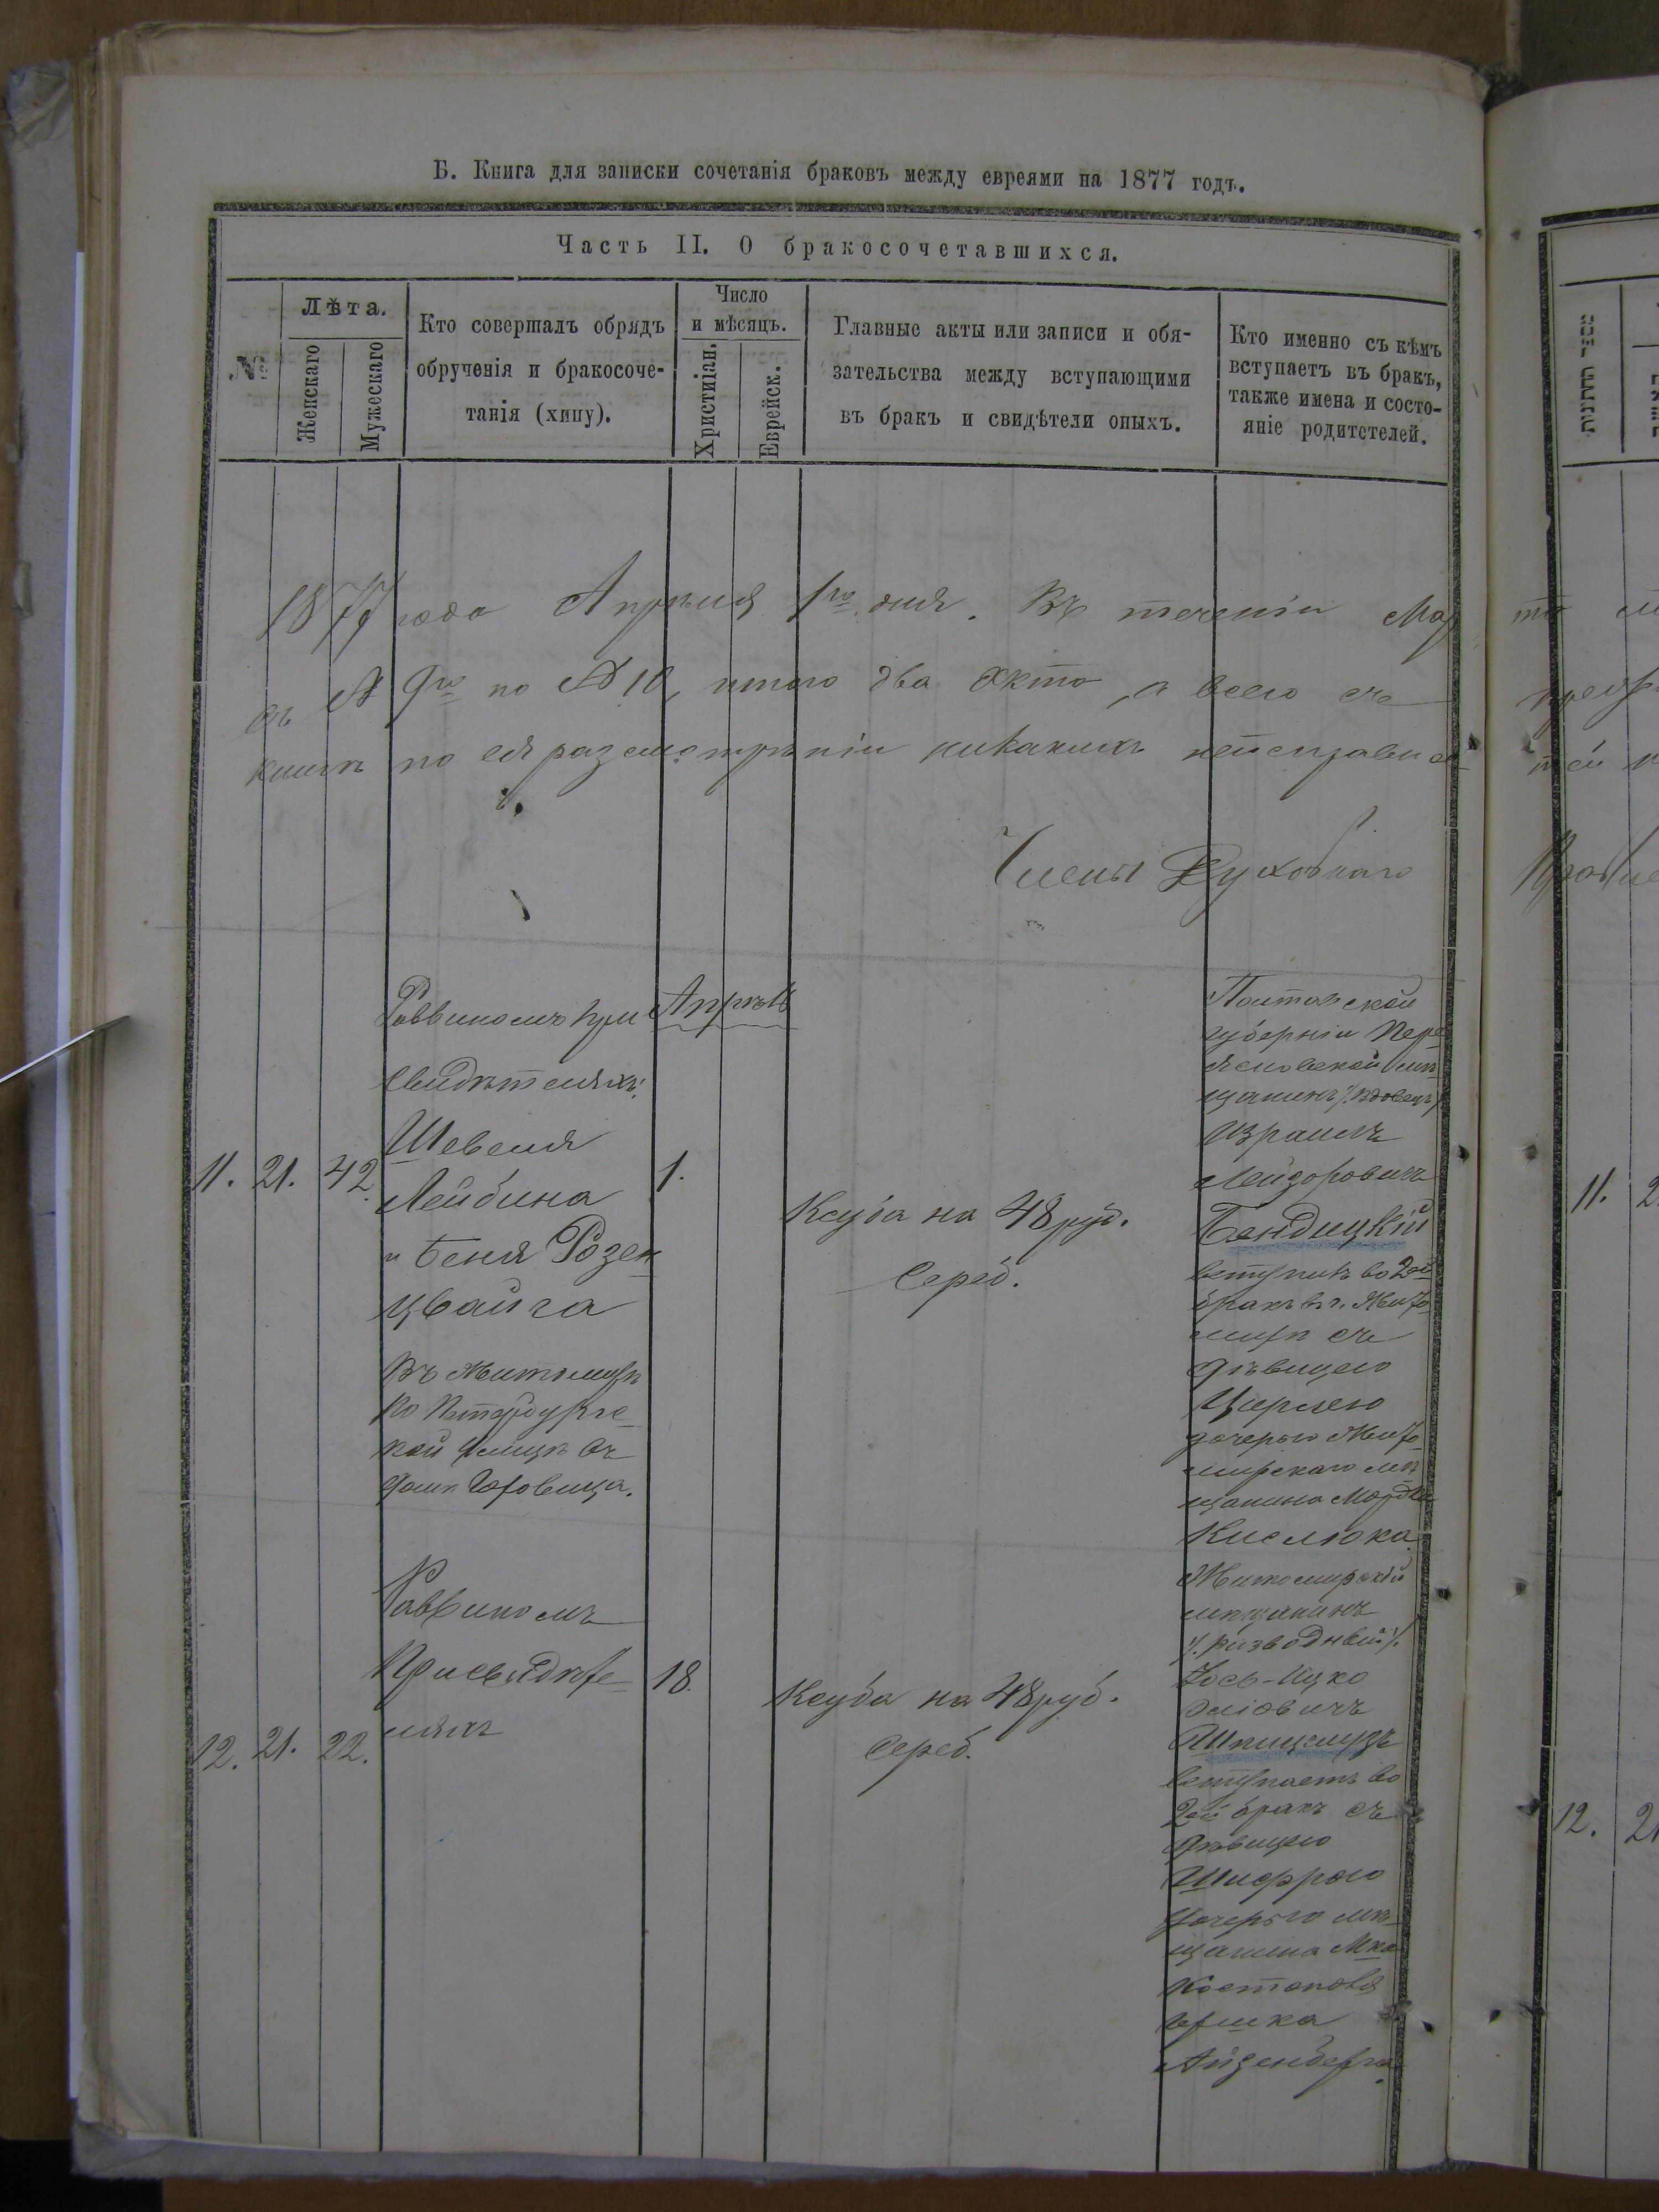 Б. Книга для записки сочетанія браковъ между евреями на 1877 годъ.
Часть II. О бракосочетавшихся.
№
Лѣта.
Женскаго
Мужескаго
Кто совершалъ обрядъ
обрученія и бракосоче-
танія (хипу).
Число
и мѣсяцъ.
Христіан.
Еврейск.
Главные акты или записи и обя-
зательства между вступающими
въ бракъ и свидѣтели оныхъ.
Кто именно съ кѣмъ
вступаетъ въ бракъ,
также имена и состо-
яніе родитстелей.
1877 года Апрѣля 1го дня. Въ теченіи Мар
съ № 9го по № 10, итого два акта, а всего съ
книгѣ по ея разсмотрѣніи никакихъ неисправно
Члены Духовнаго
11. 21. 42.
Раввиномъ при
свидѣтеляхъ:
Шевеля
Лейбина
и Беня Розен
цвайга
Въ Житомирѣ
по Петербургс
кой улицѣ въ
домѣ Горовица.
Апрѣль
1.
Ксуба на 48 руб.
Сереб.
Полтавской
губерніи Пере
яславской мѣ
щанинъ /вдовецъ/
Израиль
Лейзоровичъ
Бендицкій
вступилъ во 2ой
бракъ въ г. Жито
мирѣ съ
дѣвицею
Цирлею
дочерью Жито
мирскаго мѣ
щанина Мордка
Кислюка
12. 21. 22.
Раввиномъ
при свидѣте
ляхъ
18.
Ксуба на 48 руб.
Сереб.
Житомирскій
мѣщанинъ
/разводный/
Іось-Ицко
Эліовичъ
вступаетъ во
2ой бракъ съ
дѣвицею
Шифрою
дочерью мѣ
щанина Мка
Гершка
Айзенберга
11.
12.